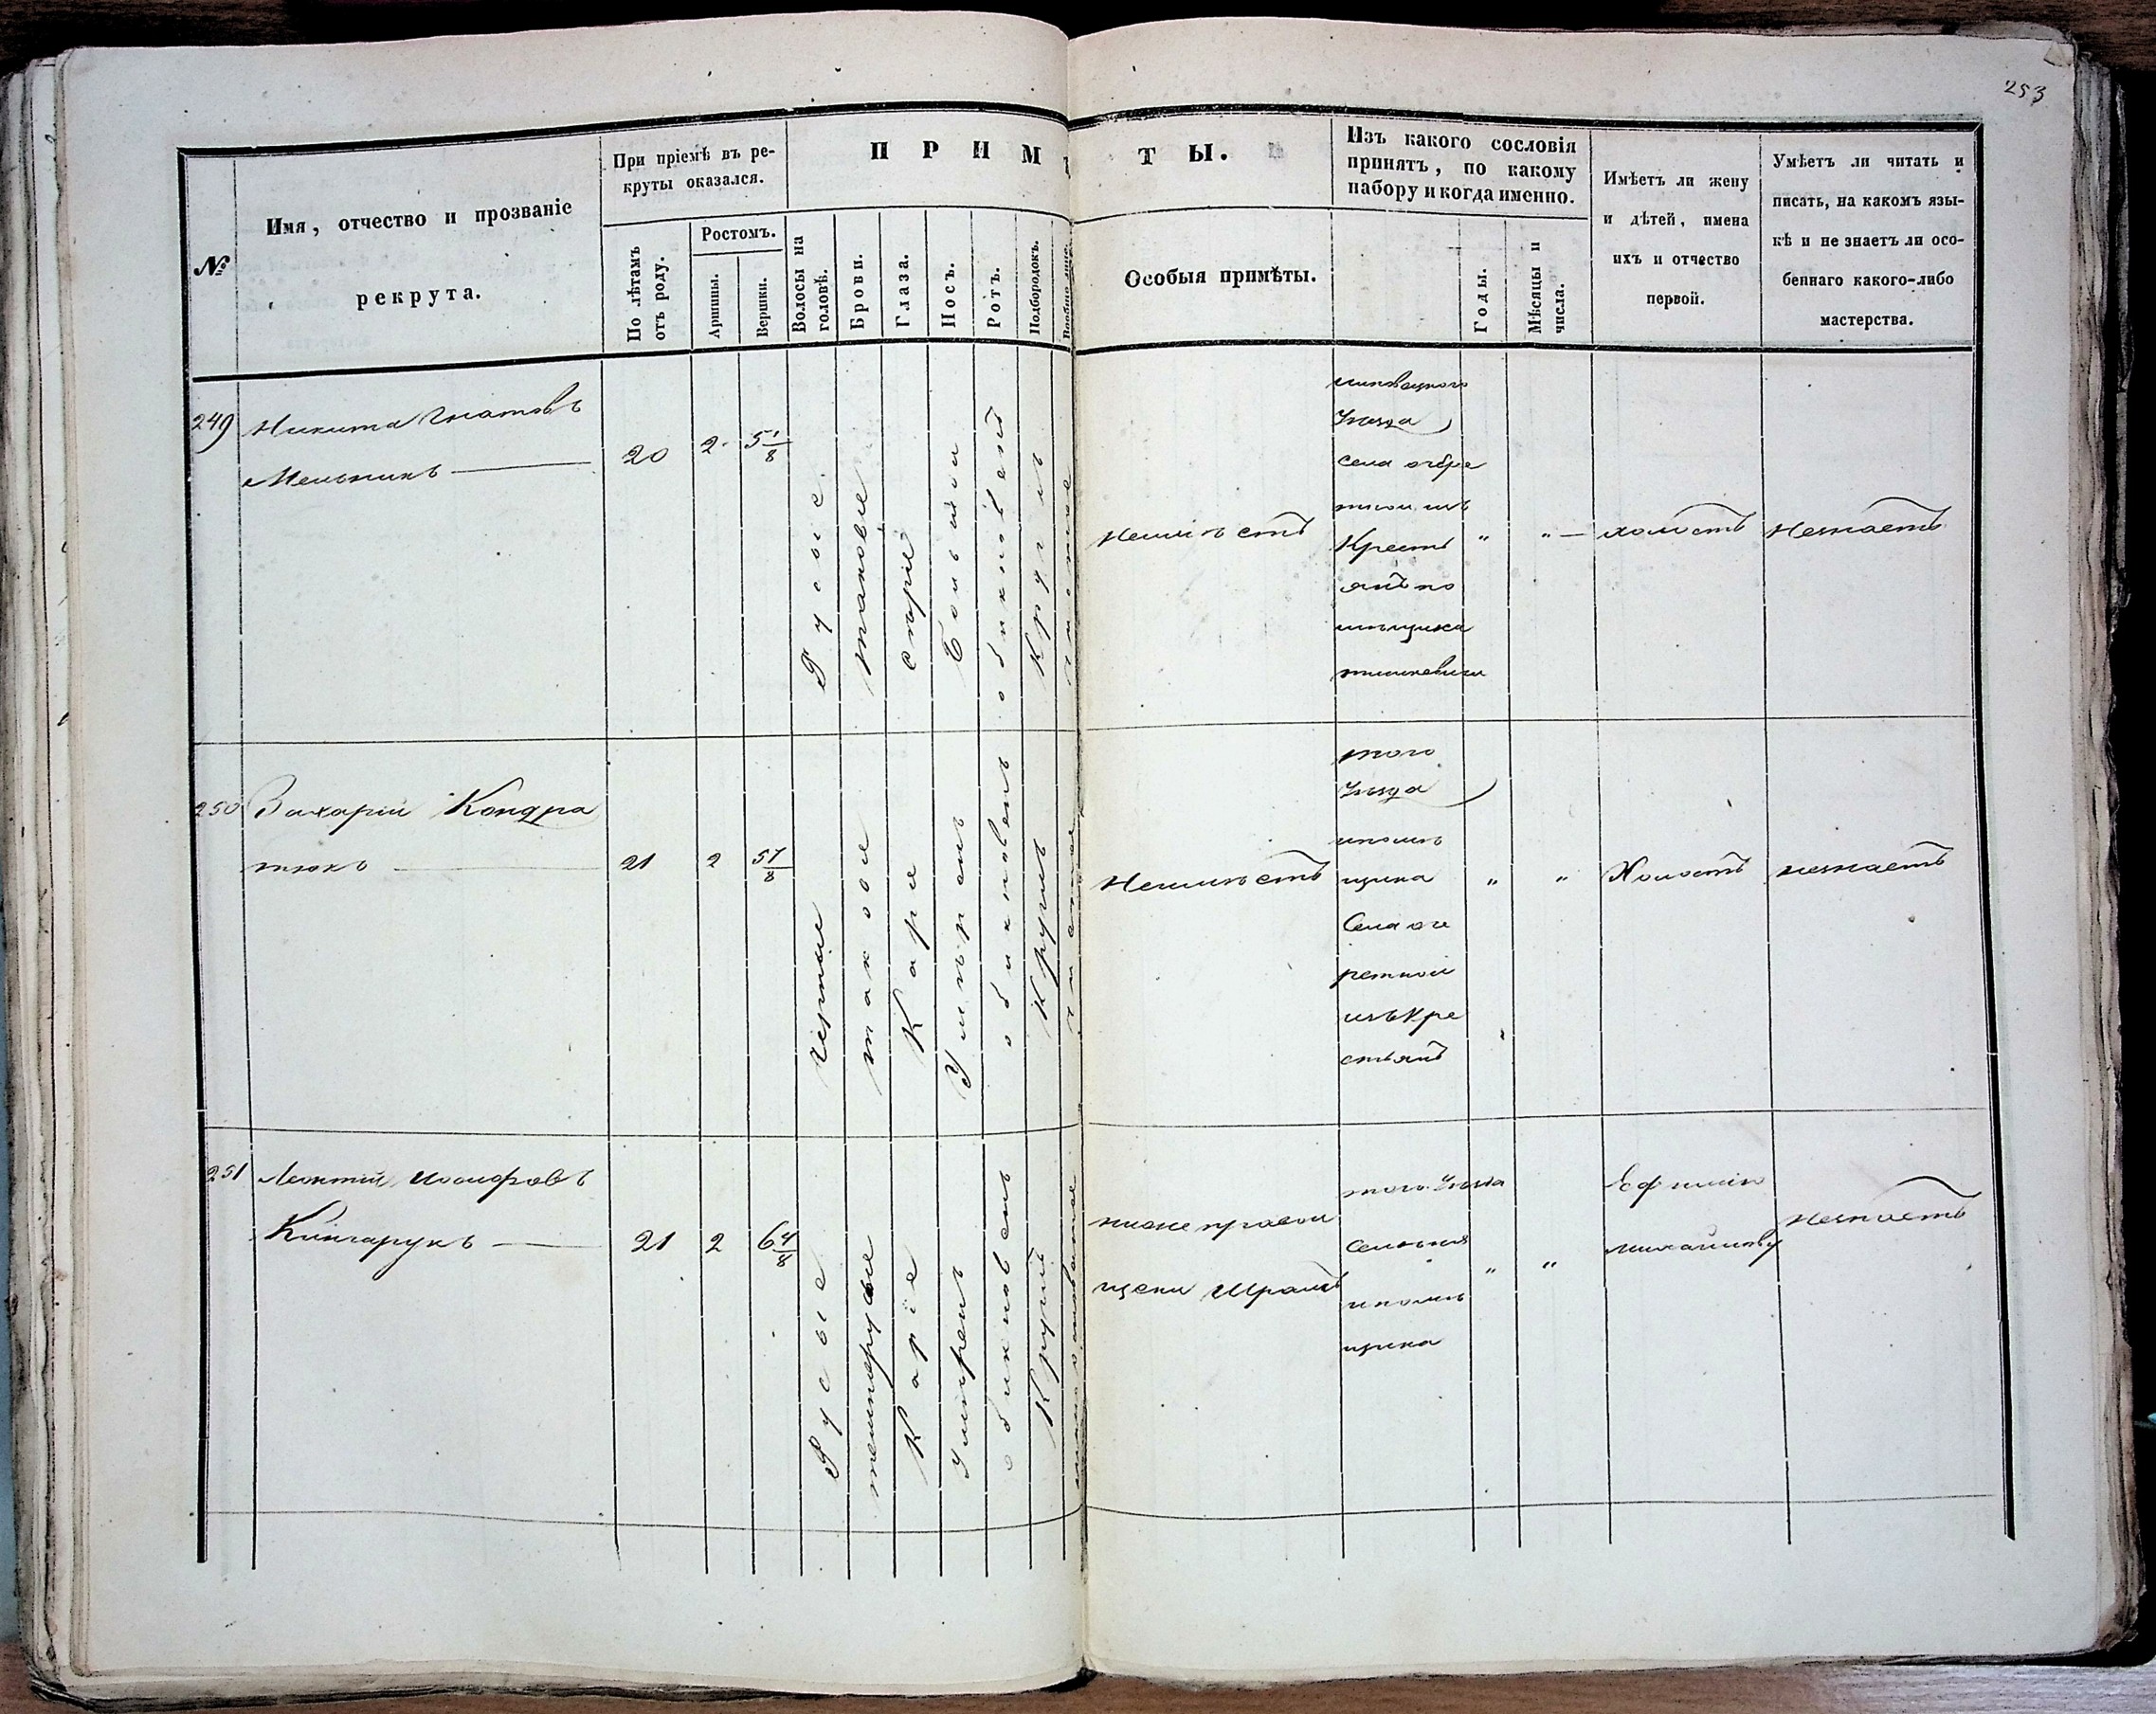 253
№
Имя, отчество и прозваніе
рекрута.
При пріемѣ въ ре-
круты оказался.
По лѣтамъ
отъ роду.
Ростомъ.
Аршины.
Вершки.
П Р И М Ѣ Т Ы.
Волосы на
головѣ.
Брови.
Глаза.
Носъ.
Ротъ.
Подбородокъ.
Особыя примѣты.
Изъ какого сословія
принятъ, по какому
набору и когда именно.
Годы.
Мѣсяцы и
числа.
Имѣетъ ли жену
и дѣтей, имена
ихъ и отчество
первой.
Умѣетъ ли читать и
писать, на какомъ язы-
кѣ и не знаетъ ли осо-
беннаго какого-либо
мастерства.
249
Никита Игнатовъ
Мельникъ
20
2
5 1/8
Русые
таковые
сѣрые
Большой
обикновенъ
Круглъ
чистое
Неимѣетъ
Уѣзда
села
Крестъ
янъ по
мѣщика
"
"
холостъ
Незнаетъ
250
Захарій Кондра
тюкъ
21
2
5 7/8
Черные
такове
Каріе
Умѣренъ
обикновенъ
Круглъ
чистое
Неимѣетъ
того
Уѣзда
ипомѣ
щика
Села оче
ретной
изъ Кре
стьянъ
"
"
Холостъ
незнаетъ
251
Леонтій Иосифовъ
21
2
6 4/8
Русые
темнорусые
Каріе
Умѣренъ
обикновенъ
Круглъ
ниже правой
щеки Шрамъ
того Уѣзда
ипомѣ
щика
"
"
Ефимію
михайлову
Незнаетъ